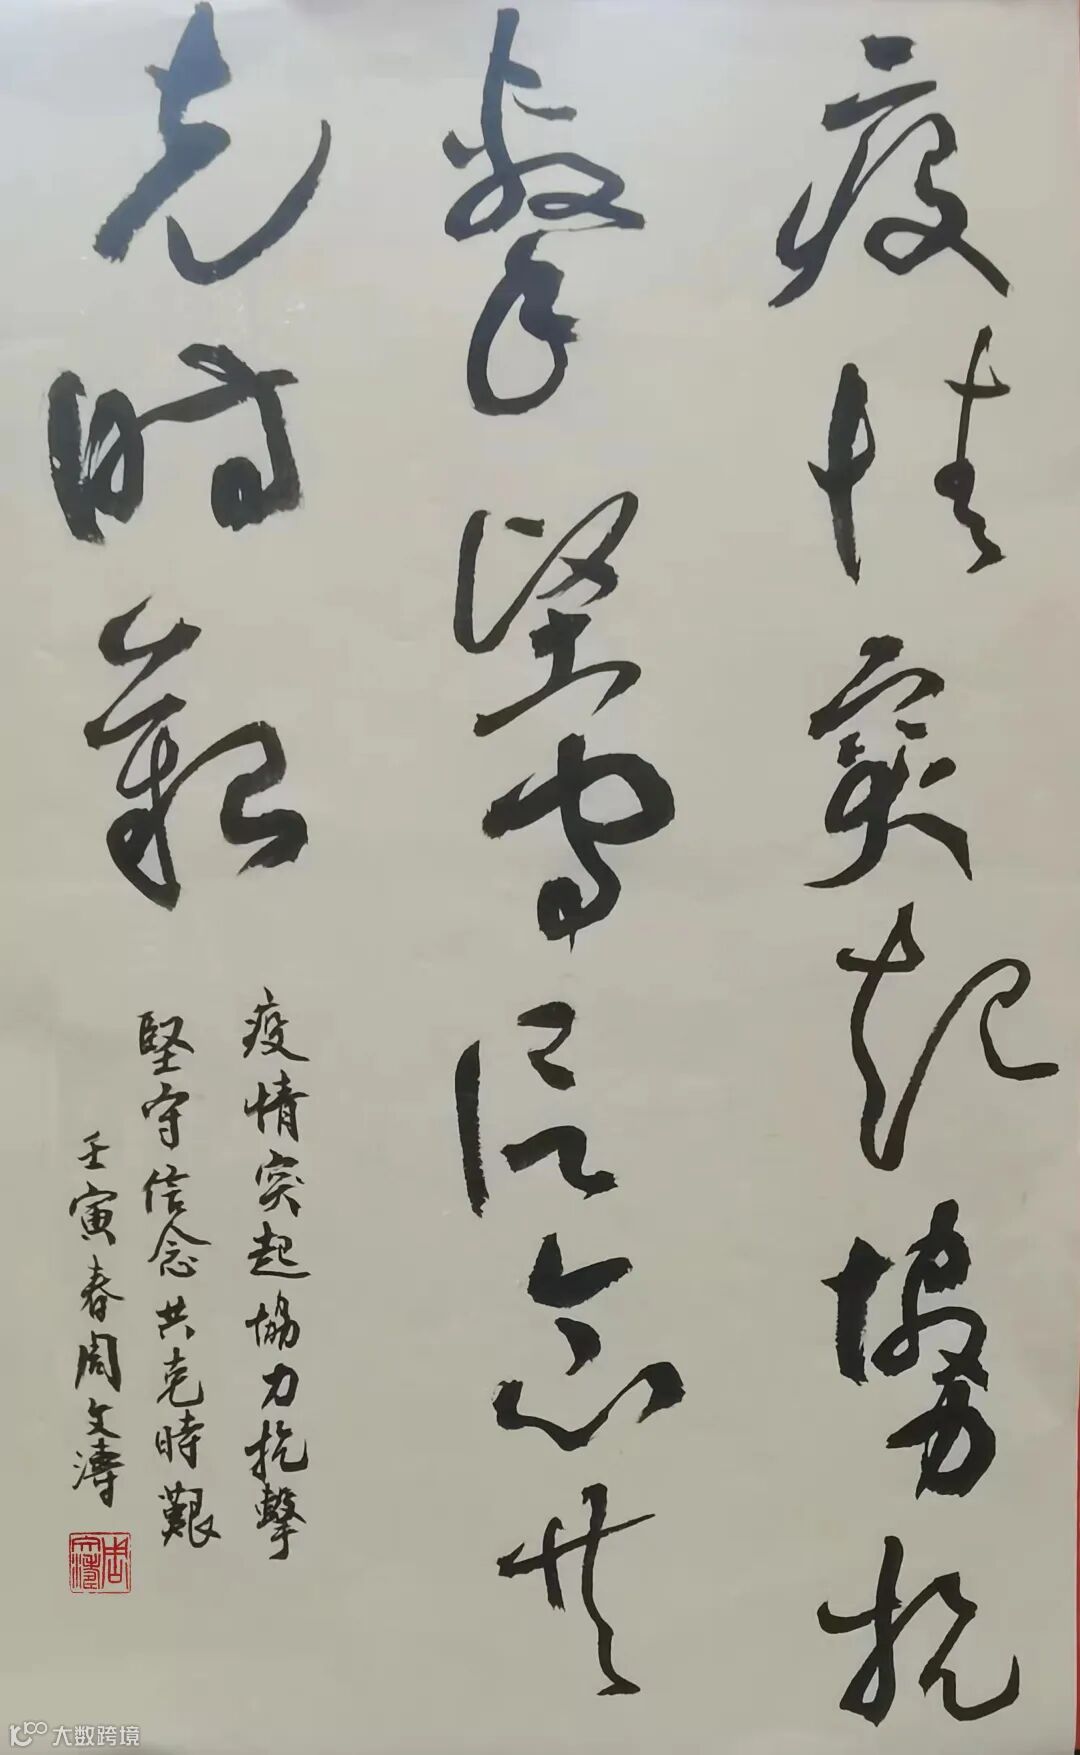 疫情突起協力抗
擊堅守信念共
克時艱
疫情突起協力抗擊
堅守信念共克時艱
壬寅春周文濤
周文濤
大数跨境